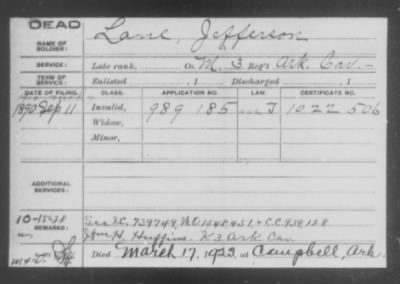 DEAD
NAME OF SOLDIER: Lane, Jefferson
SERVICE: Late rank, Co. M, 3 Reg't Ark. Cav.
TERM OF SERVICE: Enlisted , 1 Discharged , 1
DATE OF FILING. CLASS. APPLICATION NO. LAW. CERTIFICATE NO.
1890 Sep 11 Invalid, 989 185 J 1022 506
Widow,
Minor,
ADDITIONAL SERVICES:
10-15-28 See S.C. 739749, W.O. 1548,451, & C.C. 939,128
REMARKS: Wm H. Huggins. K 3 Ark Cav
Died March 17, 1923, at Campbell, Ark.